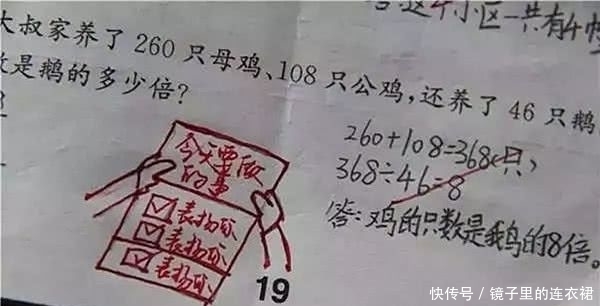 这个小区一共有4幢
大叔家养了 260 只母鸡、108 只公鸡，还养了 46 只鹅
数是鹅的多少倍？
260+108=368(只)
368÷46=8
答:鸡的只数是鹅的8倍。
今天要做
的事
表扬你
表扬你
表扬你
19
快传号 / 镜子里的连衣裙